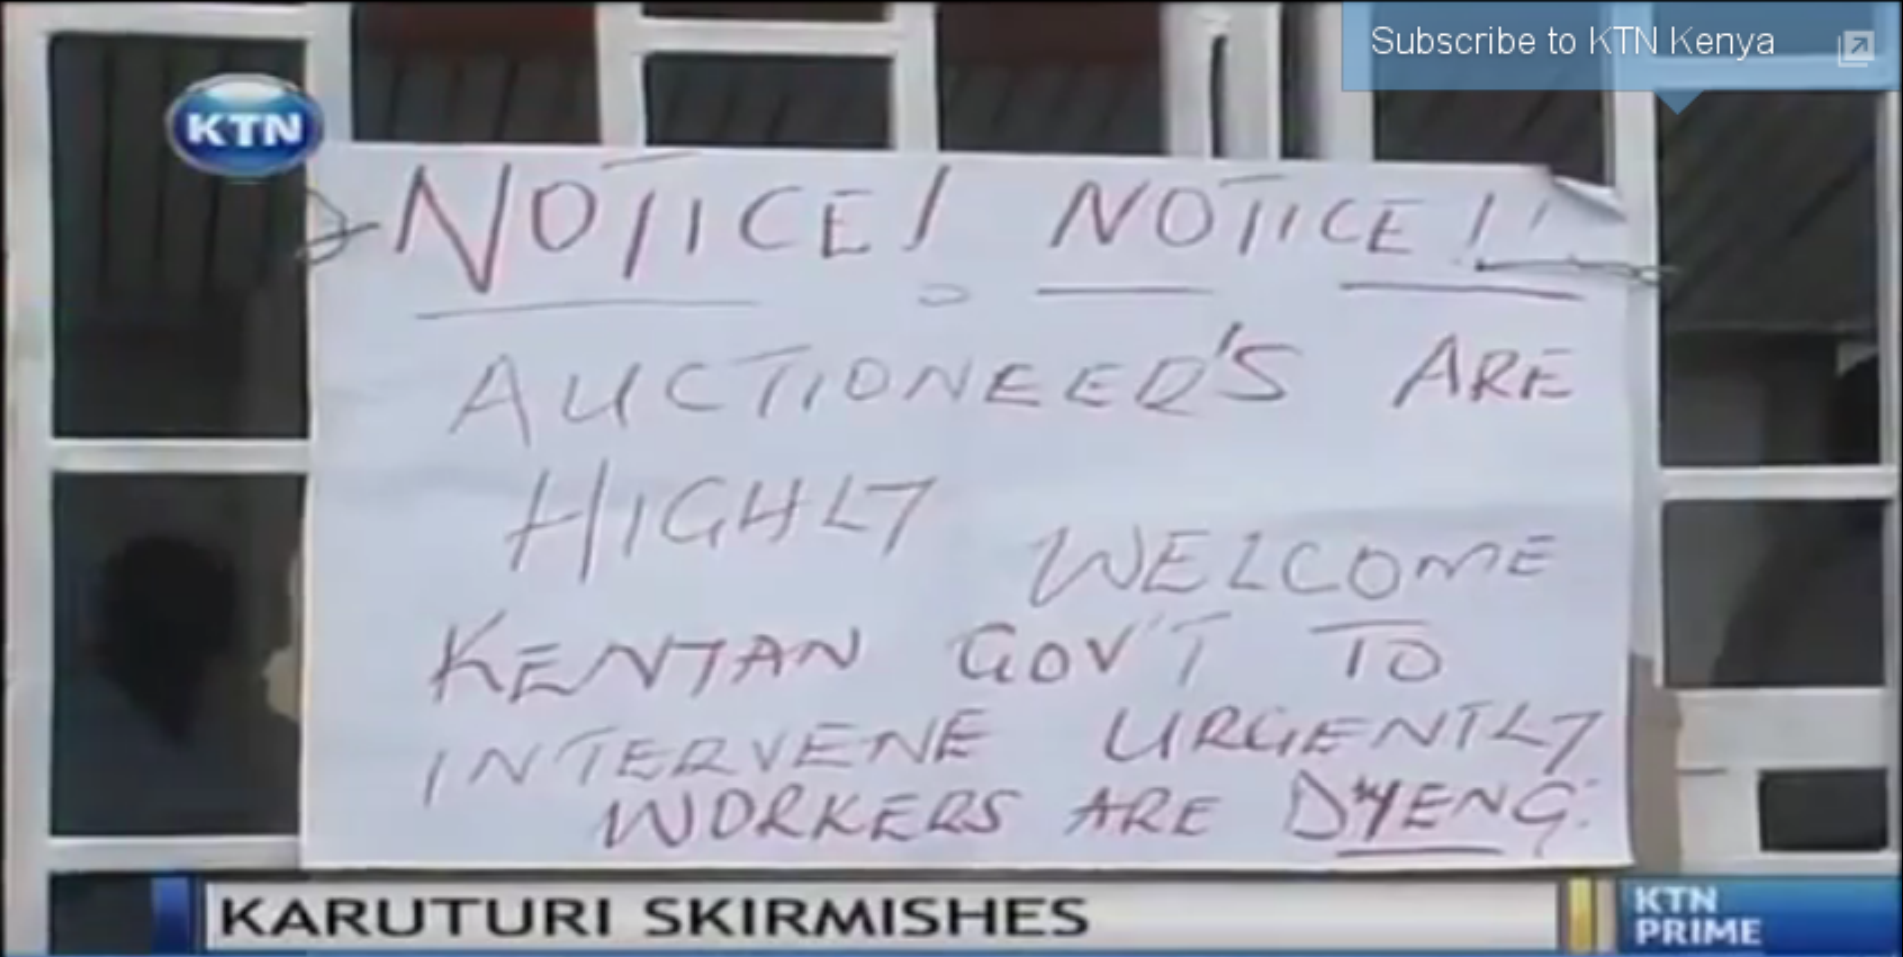 Subscribe to KTN Kenya
KTN
NOTICE! NOTICE!!
AUCTIONEER'S ARE
HIGHLY WELCOME
KENYAN GOV'T TO
INTERVENE URGENTLY
WORKERS ARE DYENG.
KARUTURI SKIRMISHES
KTN
PRIME